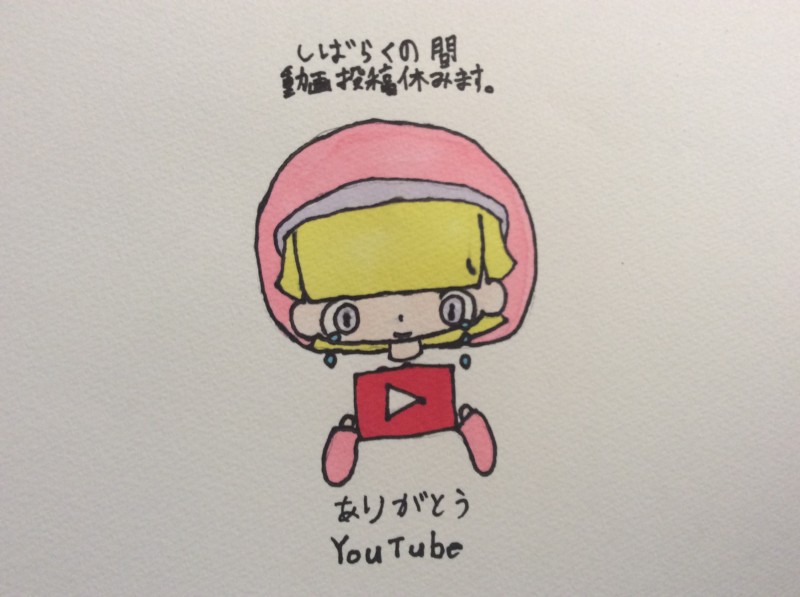 しばらくの間
動画投稿休みます。
ありがとう
YouTube